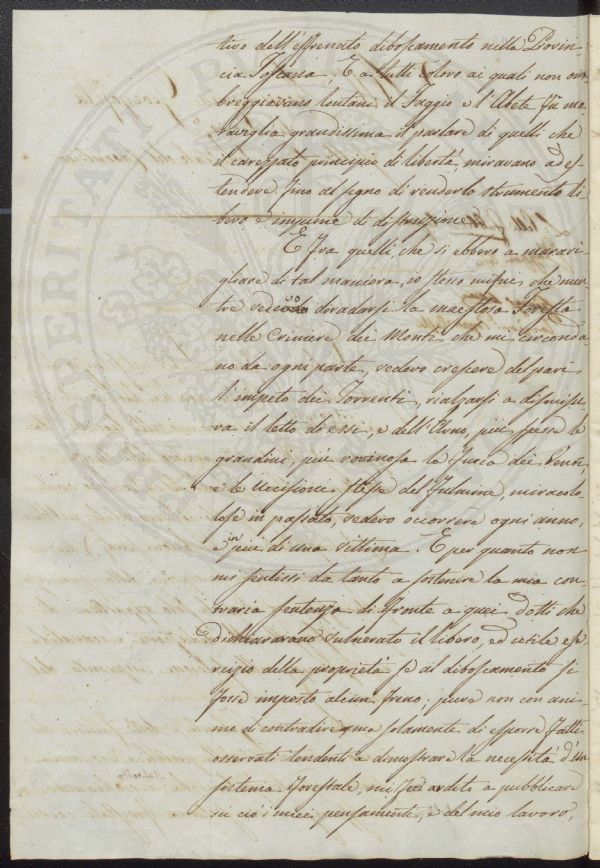 tivo dell'effrenato diboscamento nella Provin-
cia Toscana; E a tutti coloro ai quali non om-
breggiavano lontani il Faggio e l'Abete fu ma-
raviglia grandissima il parlare di quelli che
il careggiato principio di libertà, miravano ad es-
tendere fino al segno di renderlo strumento li-
bero e impune di distruzione.
E fra quelli, che si ebbero a maravi-
gliare di tal maniera, io stesso mi fui, che men-
tre vedevo diradarsi la maestosa Foresta
nelle Criniere dei Monti che mi circonda-
no da ogni parte, vedevo crescere del pari
l'impeto dei Torrenti, rialzarsi a dismisu-
ra il letto di essi, e dell'Arno, più spesse le
grandini, più rovinosa la furia dei Venti,
e le uccisioni stesse del fulmine, miracolo-
lose in passato, vedevo occorrere ogni anno,
in più di una vittima. E per quanto non
mi sentissi da tanto a sostenere la mia con-
traria sentenza di fronte a quei dotti che
dichiaravano vulnerato il libero, ed utile eser-
cizio della proprietà se al diboscamento si
fosse imposto alcun freno; pure non con ani-
mo di contradire, ma solamente di esporre fatti
osservati tendenti a dimostrare la necessità d'un
sistema forestale, mi feci ardito a pubblicare
su ciò i miei pensamenti, e del mio lavoro,
PROSPERITATI PUBLICAE